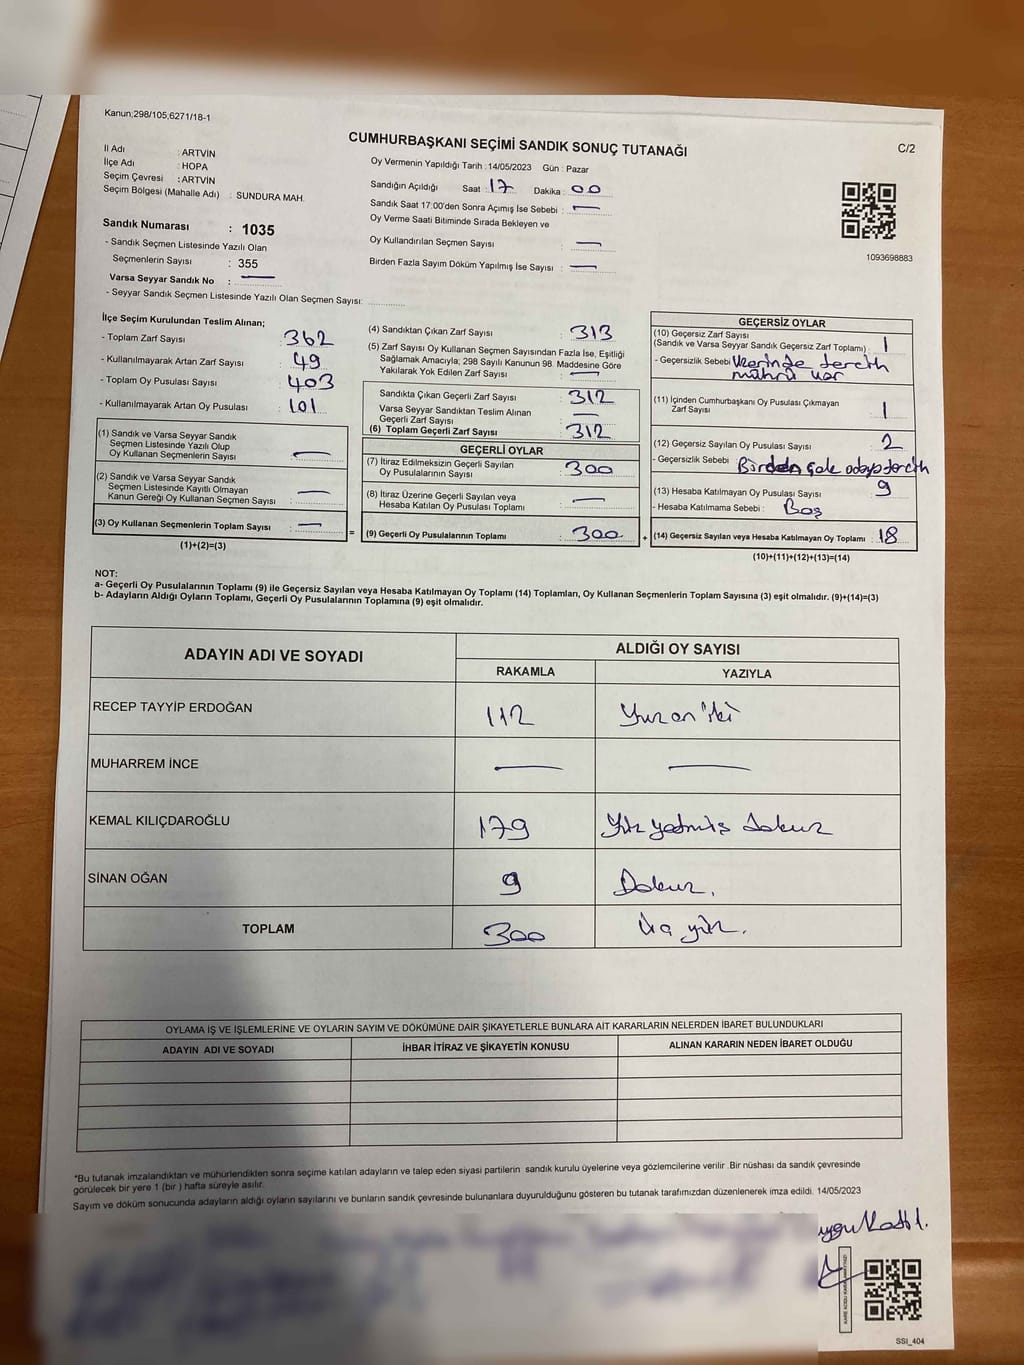 Kanun;298/105,6271/18-1
CUMHURBAŞKANI SEÇİMİ SANDIK SONUÇ TUTANAĞI
C/2
İl Adı : ARTVİN
İlçe Adı : HOPA
Seçim Çevresi : ARTVİN
Seçim Bölgesi (Mahalle Adı) : SUNDURA MAH.
Sandık Numarası : 1035
- Sandık Seçmen Listesinde Yazılı Olan
Seçmenlerin Sayısı : 355
Varsa Seyyar Sandık No : —
- Seyyar Sandık Seçmen Listesinde Yazılı Olan Seçmen Sayısı:
Oy Vermenin Yapıldığı Tarih : 14/05/2023 Gün : Pazar
Sandığın Açıldığı Saat : 17 Dakika : 00
Sandık Saat 17:00'den Sonra Açımış İse Sebebi : —
Oy Verme Saati Bitiminde Sırada Bekleyen ve
Oy Kullandırılan Seçmen Sayısı : —
Birden Fazla Sayım Döküm Yapılmış İse Sayısı : —
1093698883
İlçe Seçim Kurulundan Teslim Alınan;
- Toplam Zarf Sayısı : 362
- Kullanılmayarak Artan Zarf Sayısı : 49
- Toplam Oy Pusulası Sayısı : 403
- Kullanılmayarak Artan Oy Pusulası : 101
(1) Sandık ve Varsa Seyyar Sandık
Seçmen Listesinde Yazılı Olup
Oy Kullanan Seçmenlerin Sayısı : —
(2) Sandık ve Varsa Seyyar Sandık
Seçmen Listesinde Kayıtlı Olmayan
Kanun Gereği Oy Kullanan Seçmen Sayısı : —
(3) Oy Kullanan Seçmenlerin Toplam Sayısı : —
(1)+(2)=(3)
(4) Sandıktan Çıkan Zarf Sayısı : 313
(5) Zarf Sayısı Oy Kullanan Seçmen Sayısından Fazla İse, Eşitliği
Sağlamak Amacıyla; 298 Sayılı Kanunun 98. Maddesine Göre
Yakılarak Yok Edilen Zarf Sayısı : —
Sandıkta Çıkan Geçerli Zarf Sayısı : 312
Varsa Seyyar Sandıktan Teslim Alınan
Geçerli Zarf Sayısı : —
(6) Toplam Geçerli Zarf Sayısı : 312
GEÇERLİ OYLAR
(7) İtiraz Edilmeksizin Geçerli Sayılan
Oy Pusulalarının Sayısı : 300
(8) İtiraz Üzerine Geçerli Sayılan veya
Hesaba Katılan Oy Pusulası Toplamı : —
= (9) Geçerli Oy Pusulalarının Toplamı : 300 +
GEÇERSİZ OYLAR
(10) Geçersiz Zarf Sayısı
(Sandık ve Varsa Seyyar Sandık Geçersiz Zarf Toplamı) : 1
- Geçersizlik Sebebi : Üzerinde tercih
mührü var
(11) İçinden Cumhurbaşkanı Oy Pusulası Çıkmayan
Zarf Sayısı : 1
(12) Geçersiz Sayılan Oy Pusulası Sayısı : 2
- Geçersizlik Sebebi : Birden çok adaya tercih
(13) Hesaba Katılmayan Oy Pusulası Sayısı : 9
- Hesaba Katılmama Sebebi : Boş
(14) Geçersiz Sayılan veya Hesaba Katılmayan Oy Toplamı : 18
(10)+(11)+(12)+(13)=(14)
NOT:
a- Geçerli Oy Pusulalarının Toplamı (9) ile Geçersiz Sayılan veya Hesaba Katılmayan Oy Toplamı (14) Toplamları, Oy Kullanan Seçmenlerin Toplam Sayısına (3) eşit olmalıdır. (9)+(14)=(3)
b- Adayların Aldığı Oyların Toplamı, Geçerli Oy Pusulalarının Toplamına (9) eşit olmalıdır.
ADAYIN ADI VE SOYADI
ALDIĞI OY SAYISI
RAKAMLA YAZIYLA
RECEP TAYYİP ERDOĞAN 112 Yüz on iki
MUHARREM İNCE — —
KEMAL KILIÇDAROĞLU 179 Yüz yetmiş dokuz
SİNAN OĞAN 9 Dokuz.
TOPLAM 300 Üç yüz.
OYLAMA İŞ VE İŞLEMLERİNE VE OYLARIN SAYIM VE DÖKÜMÜNE DAİR ŞİKAYETLERLE BUNLARA AİT KARARLARIN NELERDEN İBARET BULUNDUKLARI
ADAYIN ADI VE SOYADI İHBAR İTİRAZ VE ŞİKAYETİN KONUSU ALINAN KARARIN NEDEN İBARET OLDUĞU
*Bu tutanak imzalandıktan ve mühürlendikten sonra seçime katılan adayların ve talep eden siyasi partilerin sandık kurulu üyelerine veya gözlemcilerine verilir .Bir nüshası da sandık çevresinde
görülecek bir yere 1 (bir ) hafta süreyle asılır.
Sayım ve döküm sonucunda adayların aldığı oyların sayılarını ve bunların sandık çevresinde bulunanlara duyurulduğunu gösteren bu tutanak tarafımızdan düzenlenerek imza edildi. 14/05/2023
SSI_404